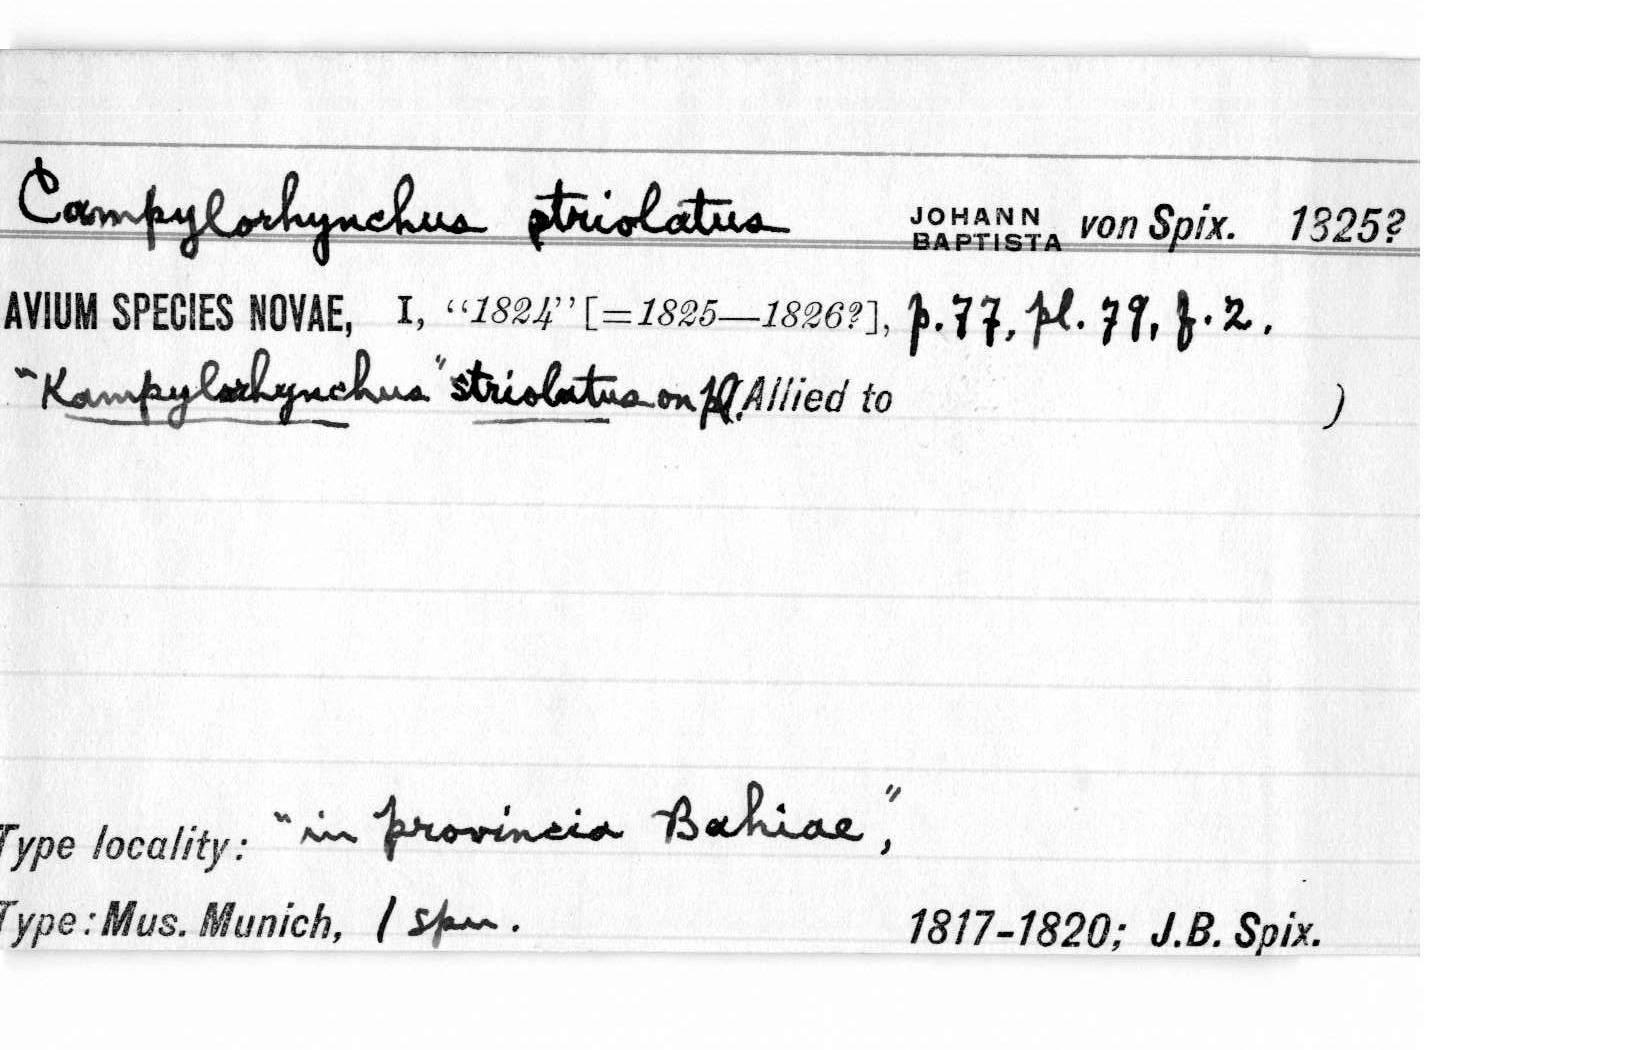 Campylorhynchus striolatus JOHANN BAPTISTA von Spix. 1825?
AVIUM SPECIES NOVAE, I, “1824” [=1825—1826?], p. 77, pl. 79, f. 2.
"Kampylorhynchus" striolatus on pl. Allied to )
Type locality: "in provincia Bahiae,"
Type: Mus. Munich, 1 spm. 1817-1820; J.B. Spix.